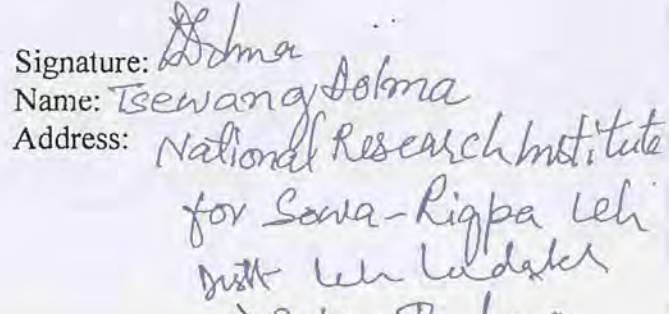 Signature: Dolma
Name: Tsewang Dolma
Address: National Research Institute
for Sowa-Rigpa Leh
Distt Leh Ladakh